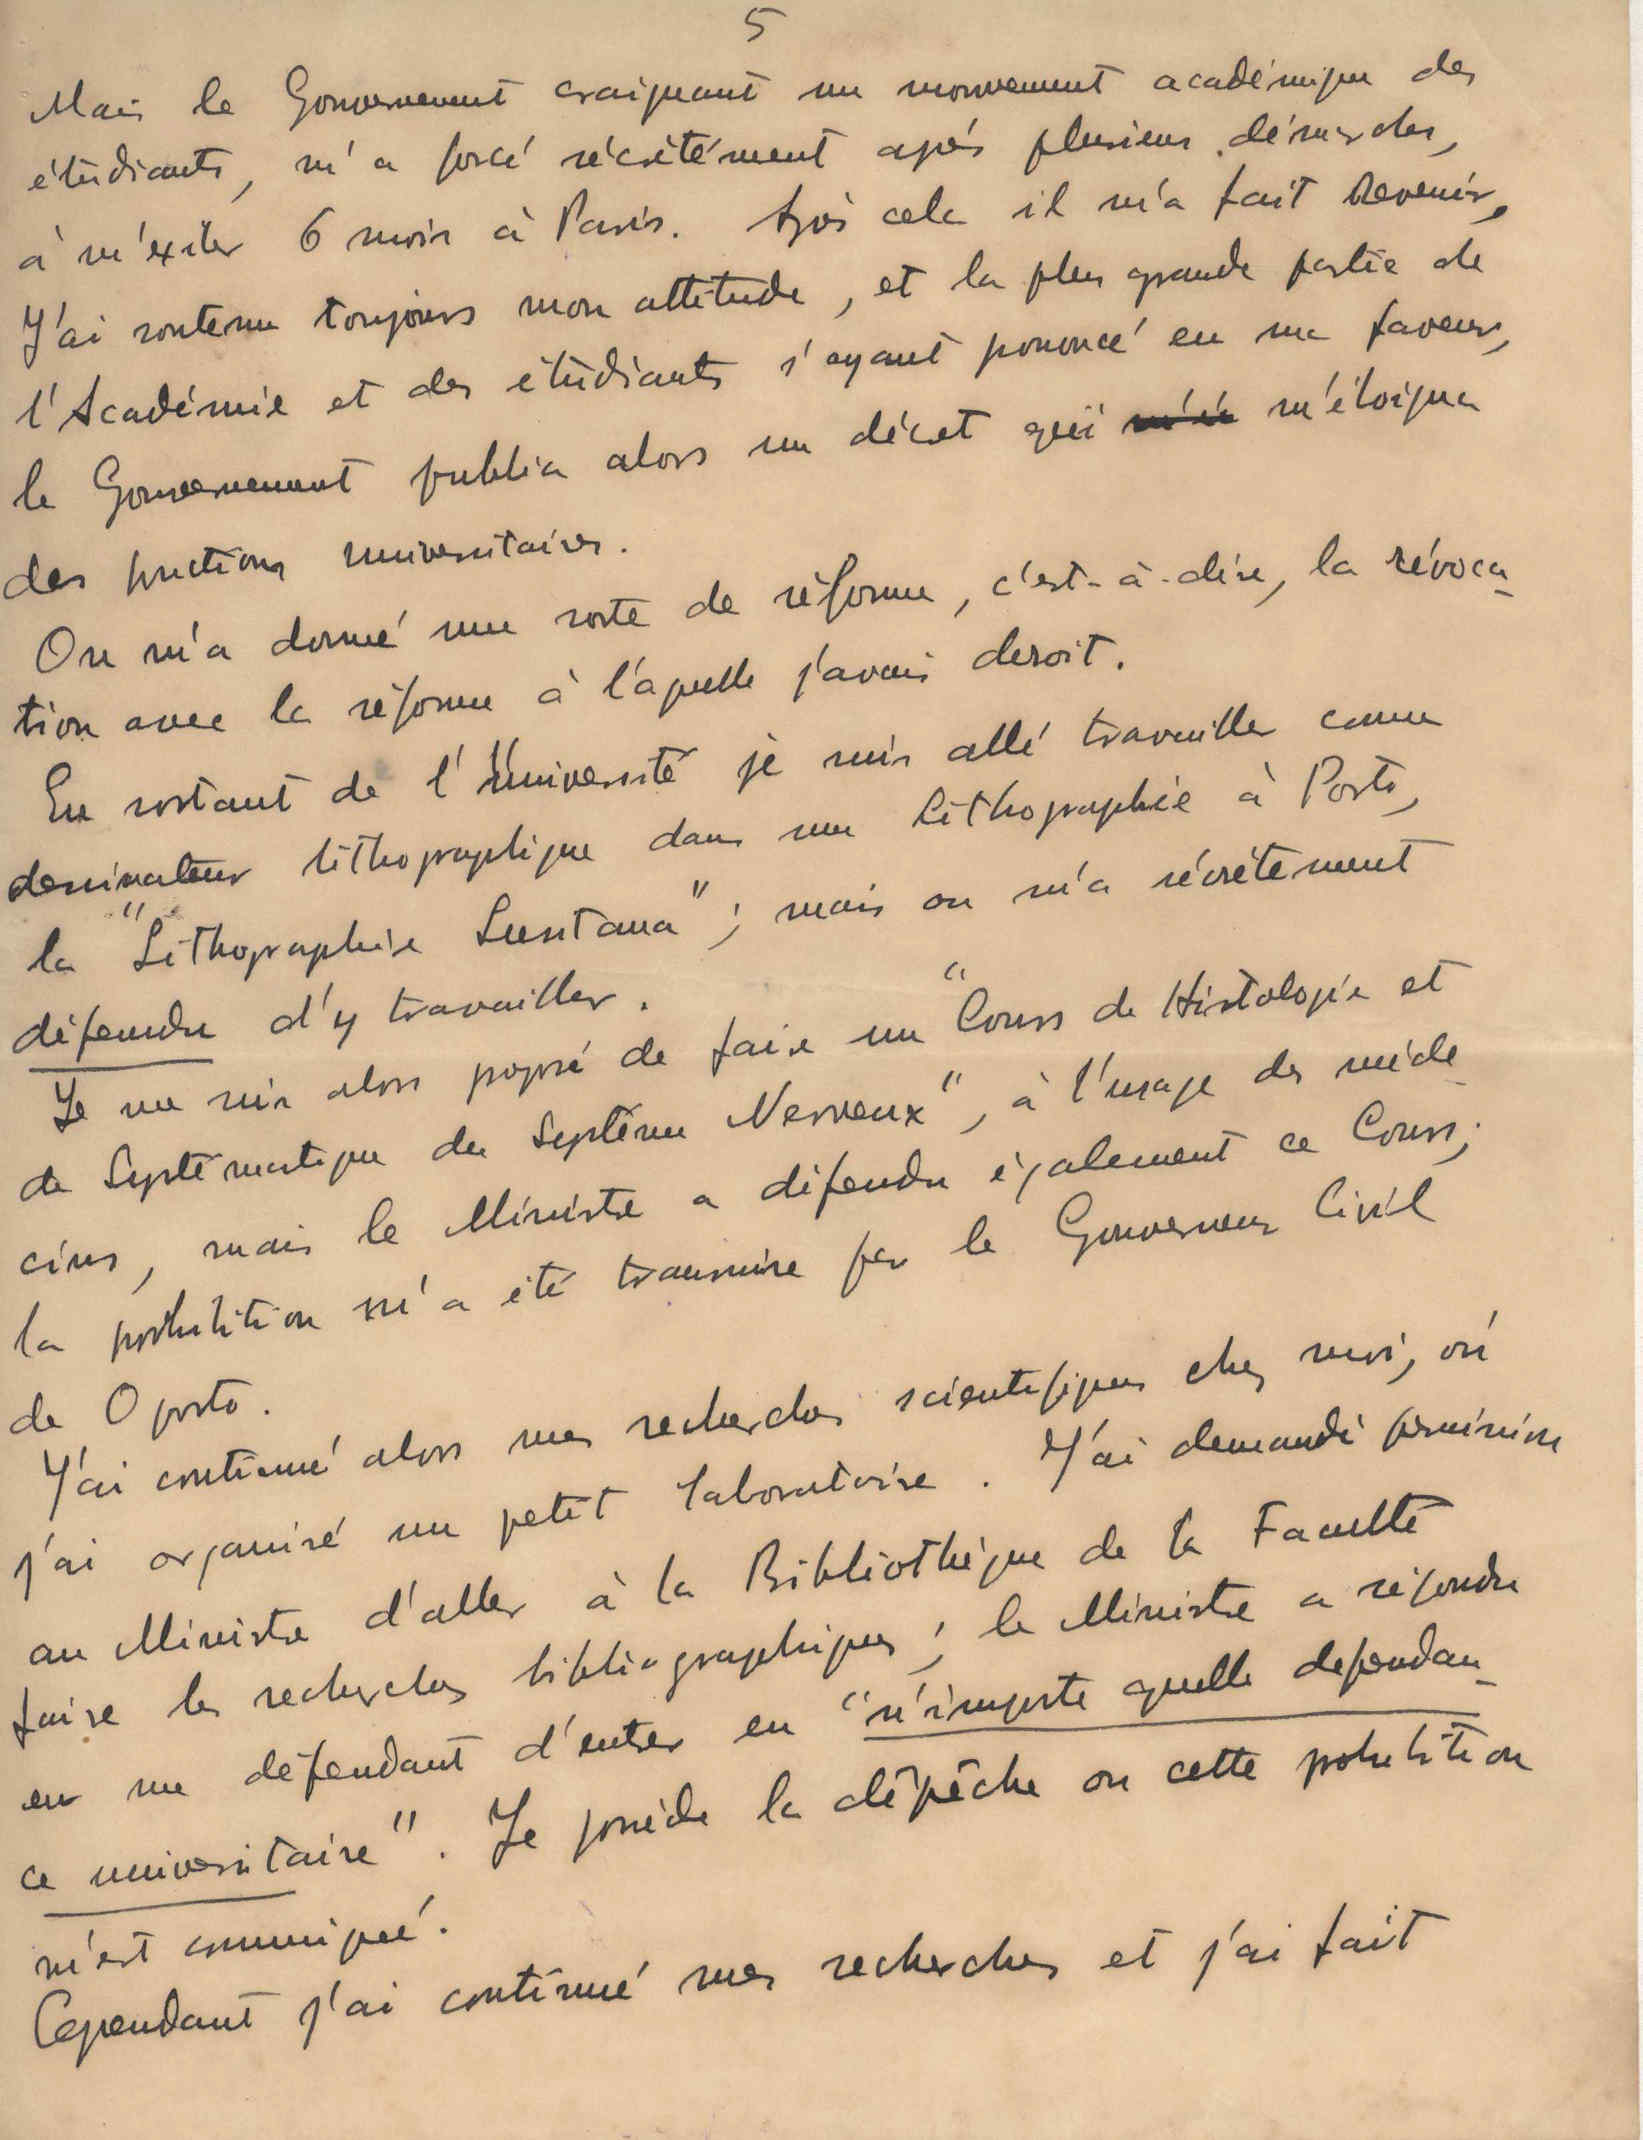 5
Mais le Gouvernement craignant un mouvement académique des
étudiants, m'a forcé sécrètément après plusieurs démarches,
à m'éxiler 6 mois à Paris. Après cela il m'a fait revenir,
J'ai soutenu toujours mon attitude, et la plus grande partie de
l'Académie et des étudiants s'ayant prononcé en ma faveur,
le Gouvernement publia alors un décret qui m'éloigna
des fonctions universitaires.
On m'a donné une sorte de réforme, c'est-à-dire, la révoca-
tion avec la réforme à l'aquelle j'avais deroit.
En sortant de l'Université je suis allé travailler comme
dessinateur lithographique dans une Lithographie à Porto,
la "Lithographie Lusitana"; mais on m'a sécrètement
défendu d'y travailler.
Je me suis alors proposé de faire un "Cours de Histologie et
de Systématique du Système Nerveux", à l'usage des méde-
cins, mais le Ministre a défendu également ce Cours;
la prohibition m'a été transmise par le Gouverneur Civil
de Oporto.
J'ai continué alors mes recherches scientifiques chez moi, où
j'ai organisé un petit laboratoire. J'ai demandé permission
au Ministre d'aller à la Bibliothèque de la Faculté
faire les recherches bibliographiques; le Ministre a répondu
en me défendant d'entrer en "n'importe quelle dependan-
ce universitaire". Je possède la dépêche ou cette prohibition
m'est communiqué.
Cependant j'ai continué mes recherches et j'ai fait